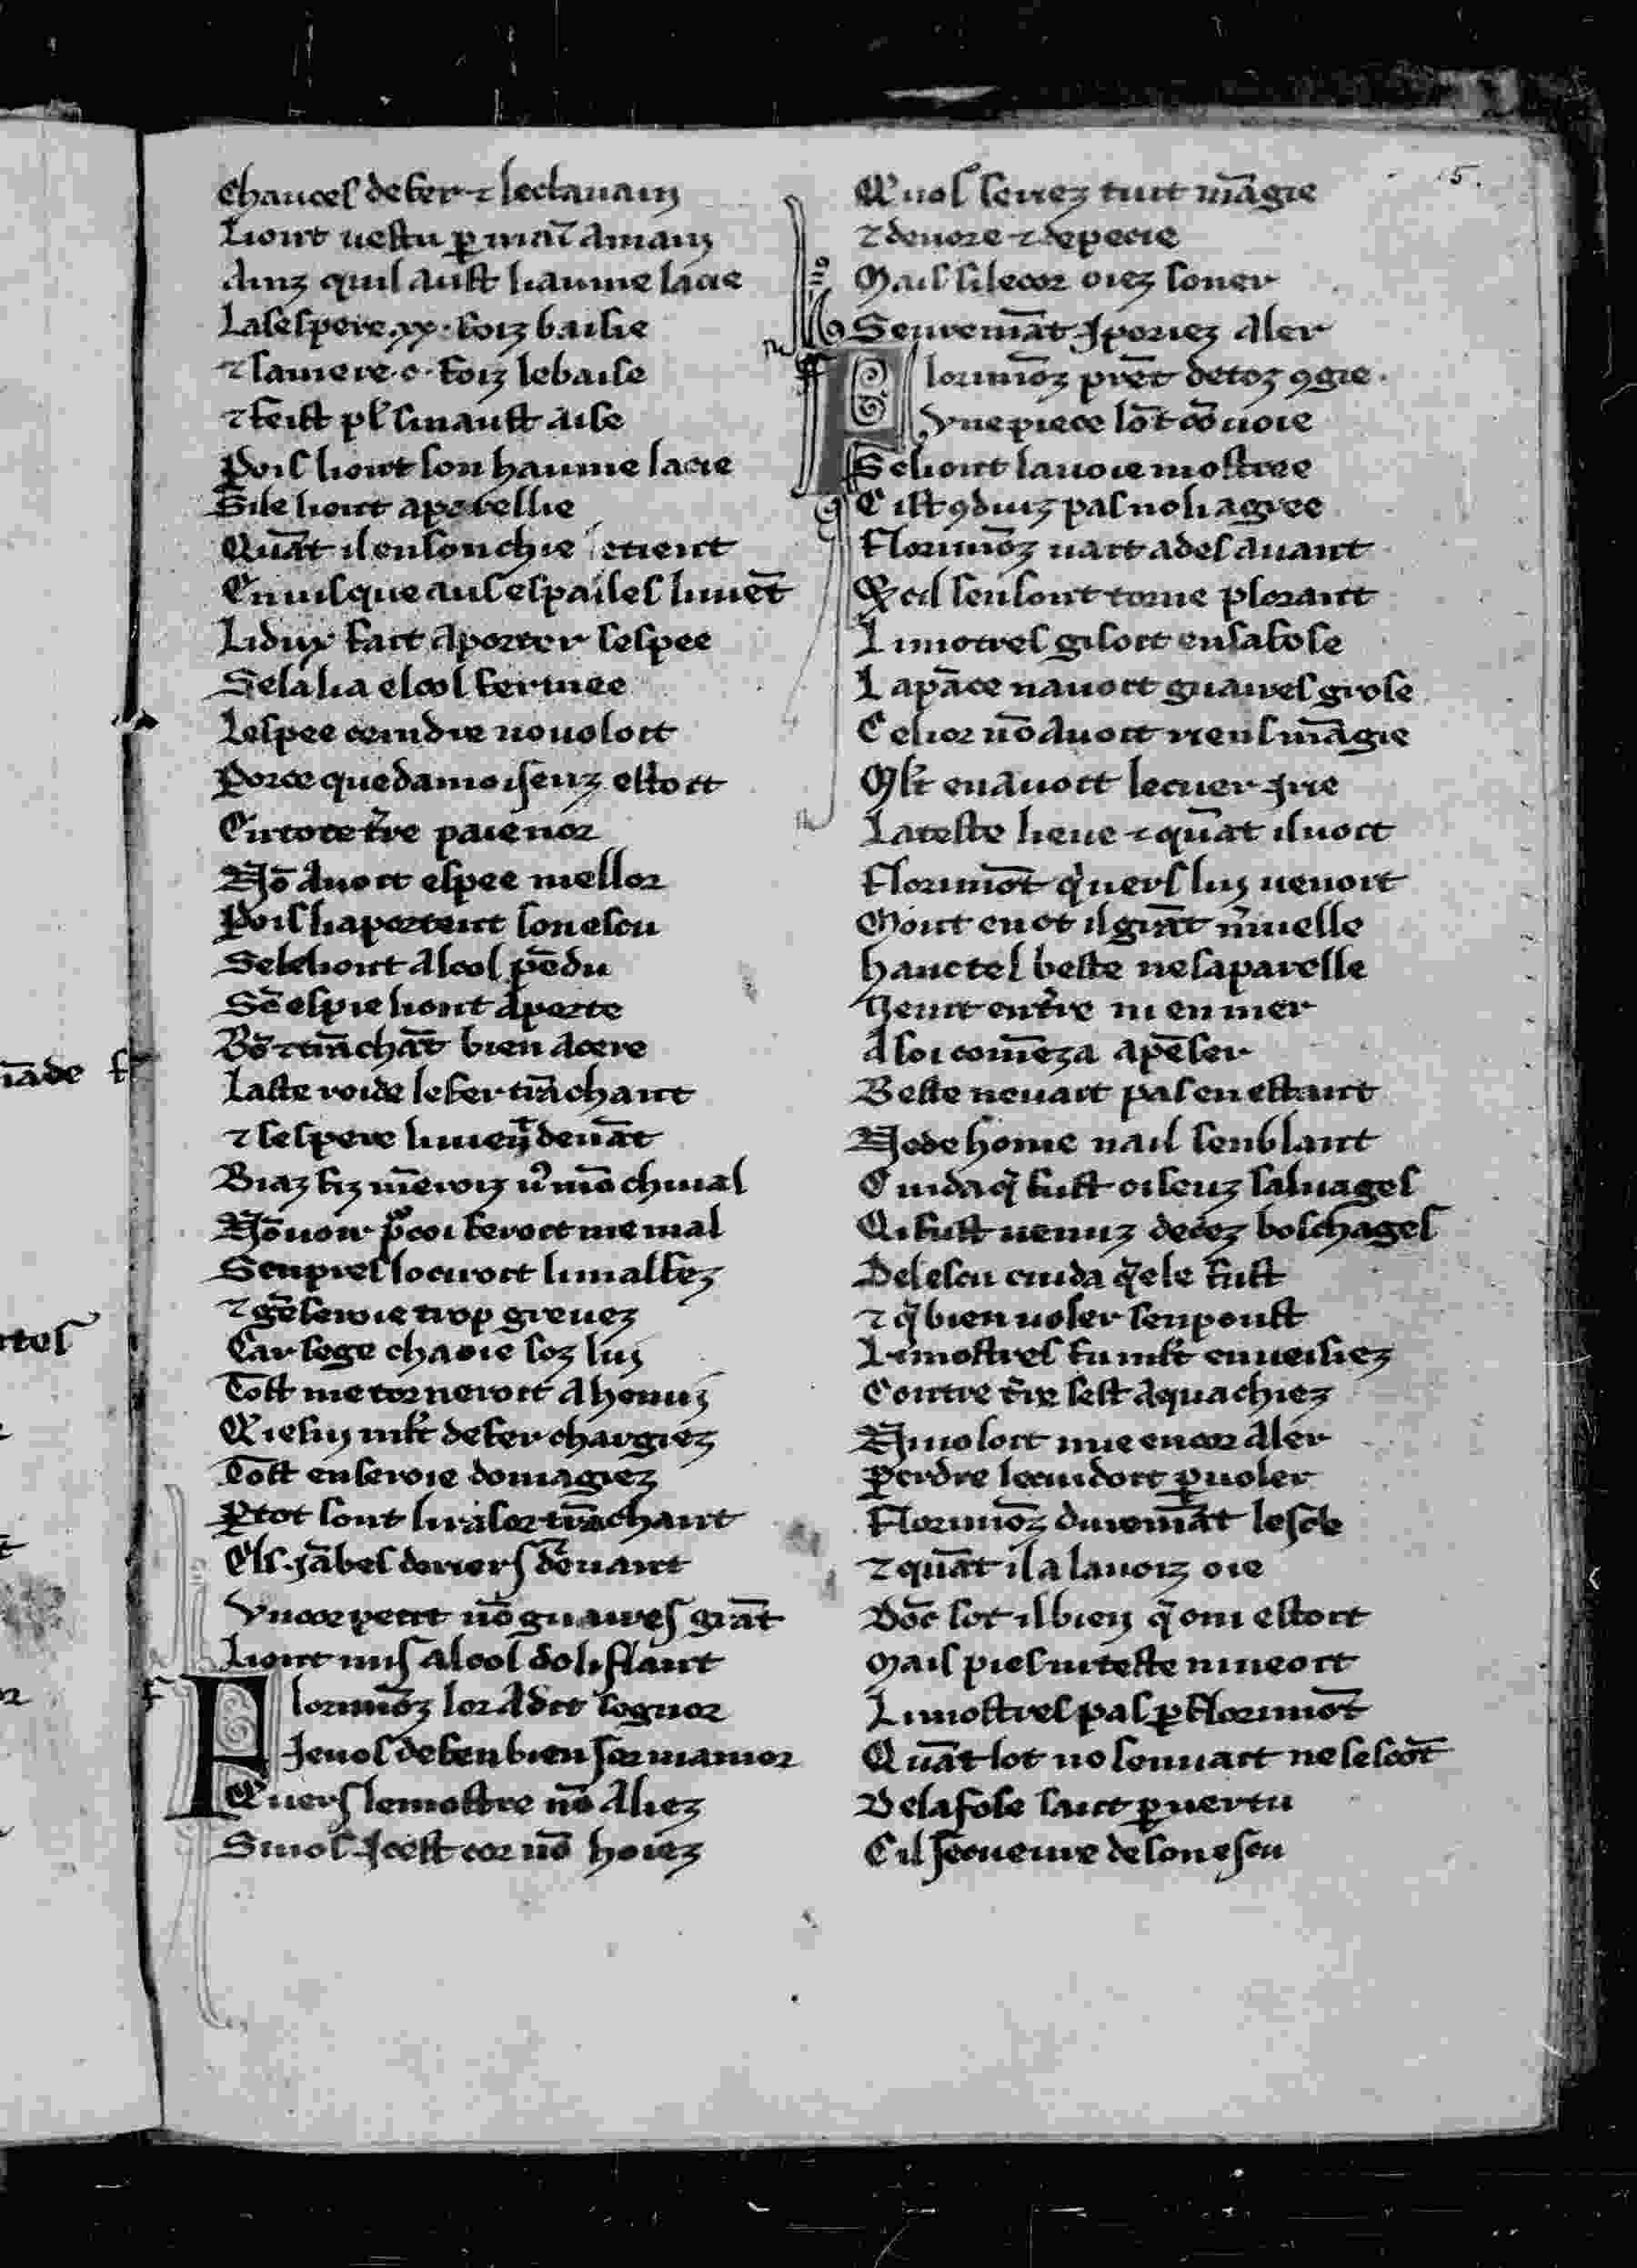 Chauces de fer ⁊ le clauain
Li ont uestu ꝑ mai᷑ a main
Ainz quil aust hiaume lacie
La se spere .xx. foiz baisie
⁊ sa mere .c. foiz le baise
⁊ feist pl᷑ sin aust aise
Pois li ont son hiaume lacie
Si le li ont aparellie
Quāt il en son chie
En uis que aus espailes li uiēt
Li dux fait aporter sespee
Se la lia el col fermee
Lespee ceindre no uoloit
Por ce que damoisenz estoit
En tote t᷑re paienor
Nō auoit espee mellor
Pois li aportent son escu
Se le li ont al col pēdu
Sō espie li ont aporte
Bō ⁊ trāchāt bien acere
Laste roide le fer trāchant
⁊ se spere li uieņ deuāt
Biaz fiz mēroiz u᷑ mō chiual
Nō uoir
Senpres locirroit li malfez
⁊ gē seroie trop greuez
Car se ge chaoie soz luj
Tost me torneroit a honuj
Qie suy mlt̄ de fer chargiez
Tost en seroie domagiez
P̱tot sont li rasor trāchant
Els jābes deriers deuant
Vn cor petit nō guaires grāt
Li ont mis al col dolifant
Florimōz lor a dit segnor
Je uos defen bien sor mamor
Quers le mostre nō aliez
Si uos Jcest cor nō hoiez
Quos seriez tuit māgie
⁊ deuore ⁊ depecie
Mais si le cor oiez soner
Seuremāt J poriez aler
Florimōz prēt de toz ꝯgie
Vne piece lōt cōuoie
Se li ont la uoie mostree
Cist ꝯduiz pas no li agree
Florimōz uait ades auant
Et cil sen sont torne plorant
Li mostres gisoit en sa fose
La pāce nauoit guaires grose
Cel ior nō auoit riens māgie
Mlt̄ en auoit le cuer Jrie
La teste lieue ⁊ quāt il uoit
Florimōt q᷑uers luj uenoit
Mont en ot il grāt m᷑uelle
Hanc tel beste ne saparelle
Neuit en t᷑re ni en mer
A soi comēza a pēser
Beste ne uait pas en estant
Ne de home na il senblant
Cuida q᷑ fust oiseuz saluages
Qi fust uenuz de cez boschages
Del escu cuida q᷑ ele fust
⁊ q᷑ bien uoler sen poust
Li mostres fu mlt̄ enueisiez
Contre t᷑re sest aquachiez
Ni uoloit mie encor aler
Perdre le cuidoit ꝑ uoler
Florimōz duremāt lescle
⁊ quāt il a la uoiz oie
Dōc sot il bien q᷑ om estoit
Mais pies ni teste ni ueoit
Li mostres pas ꝑ Florimōt
Quāt lot no sen uait ne se scōt
De la fose saut ꝑ uertu
Cil se coueure de son escu